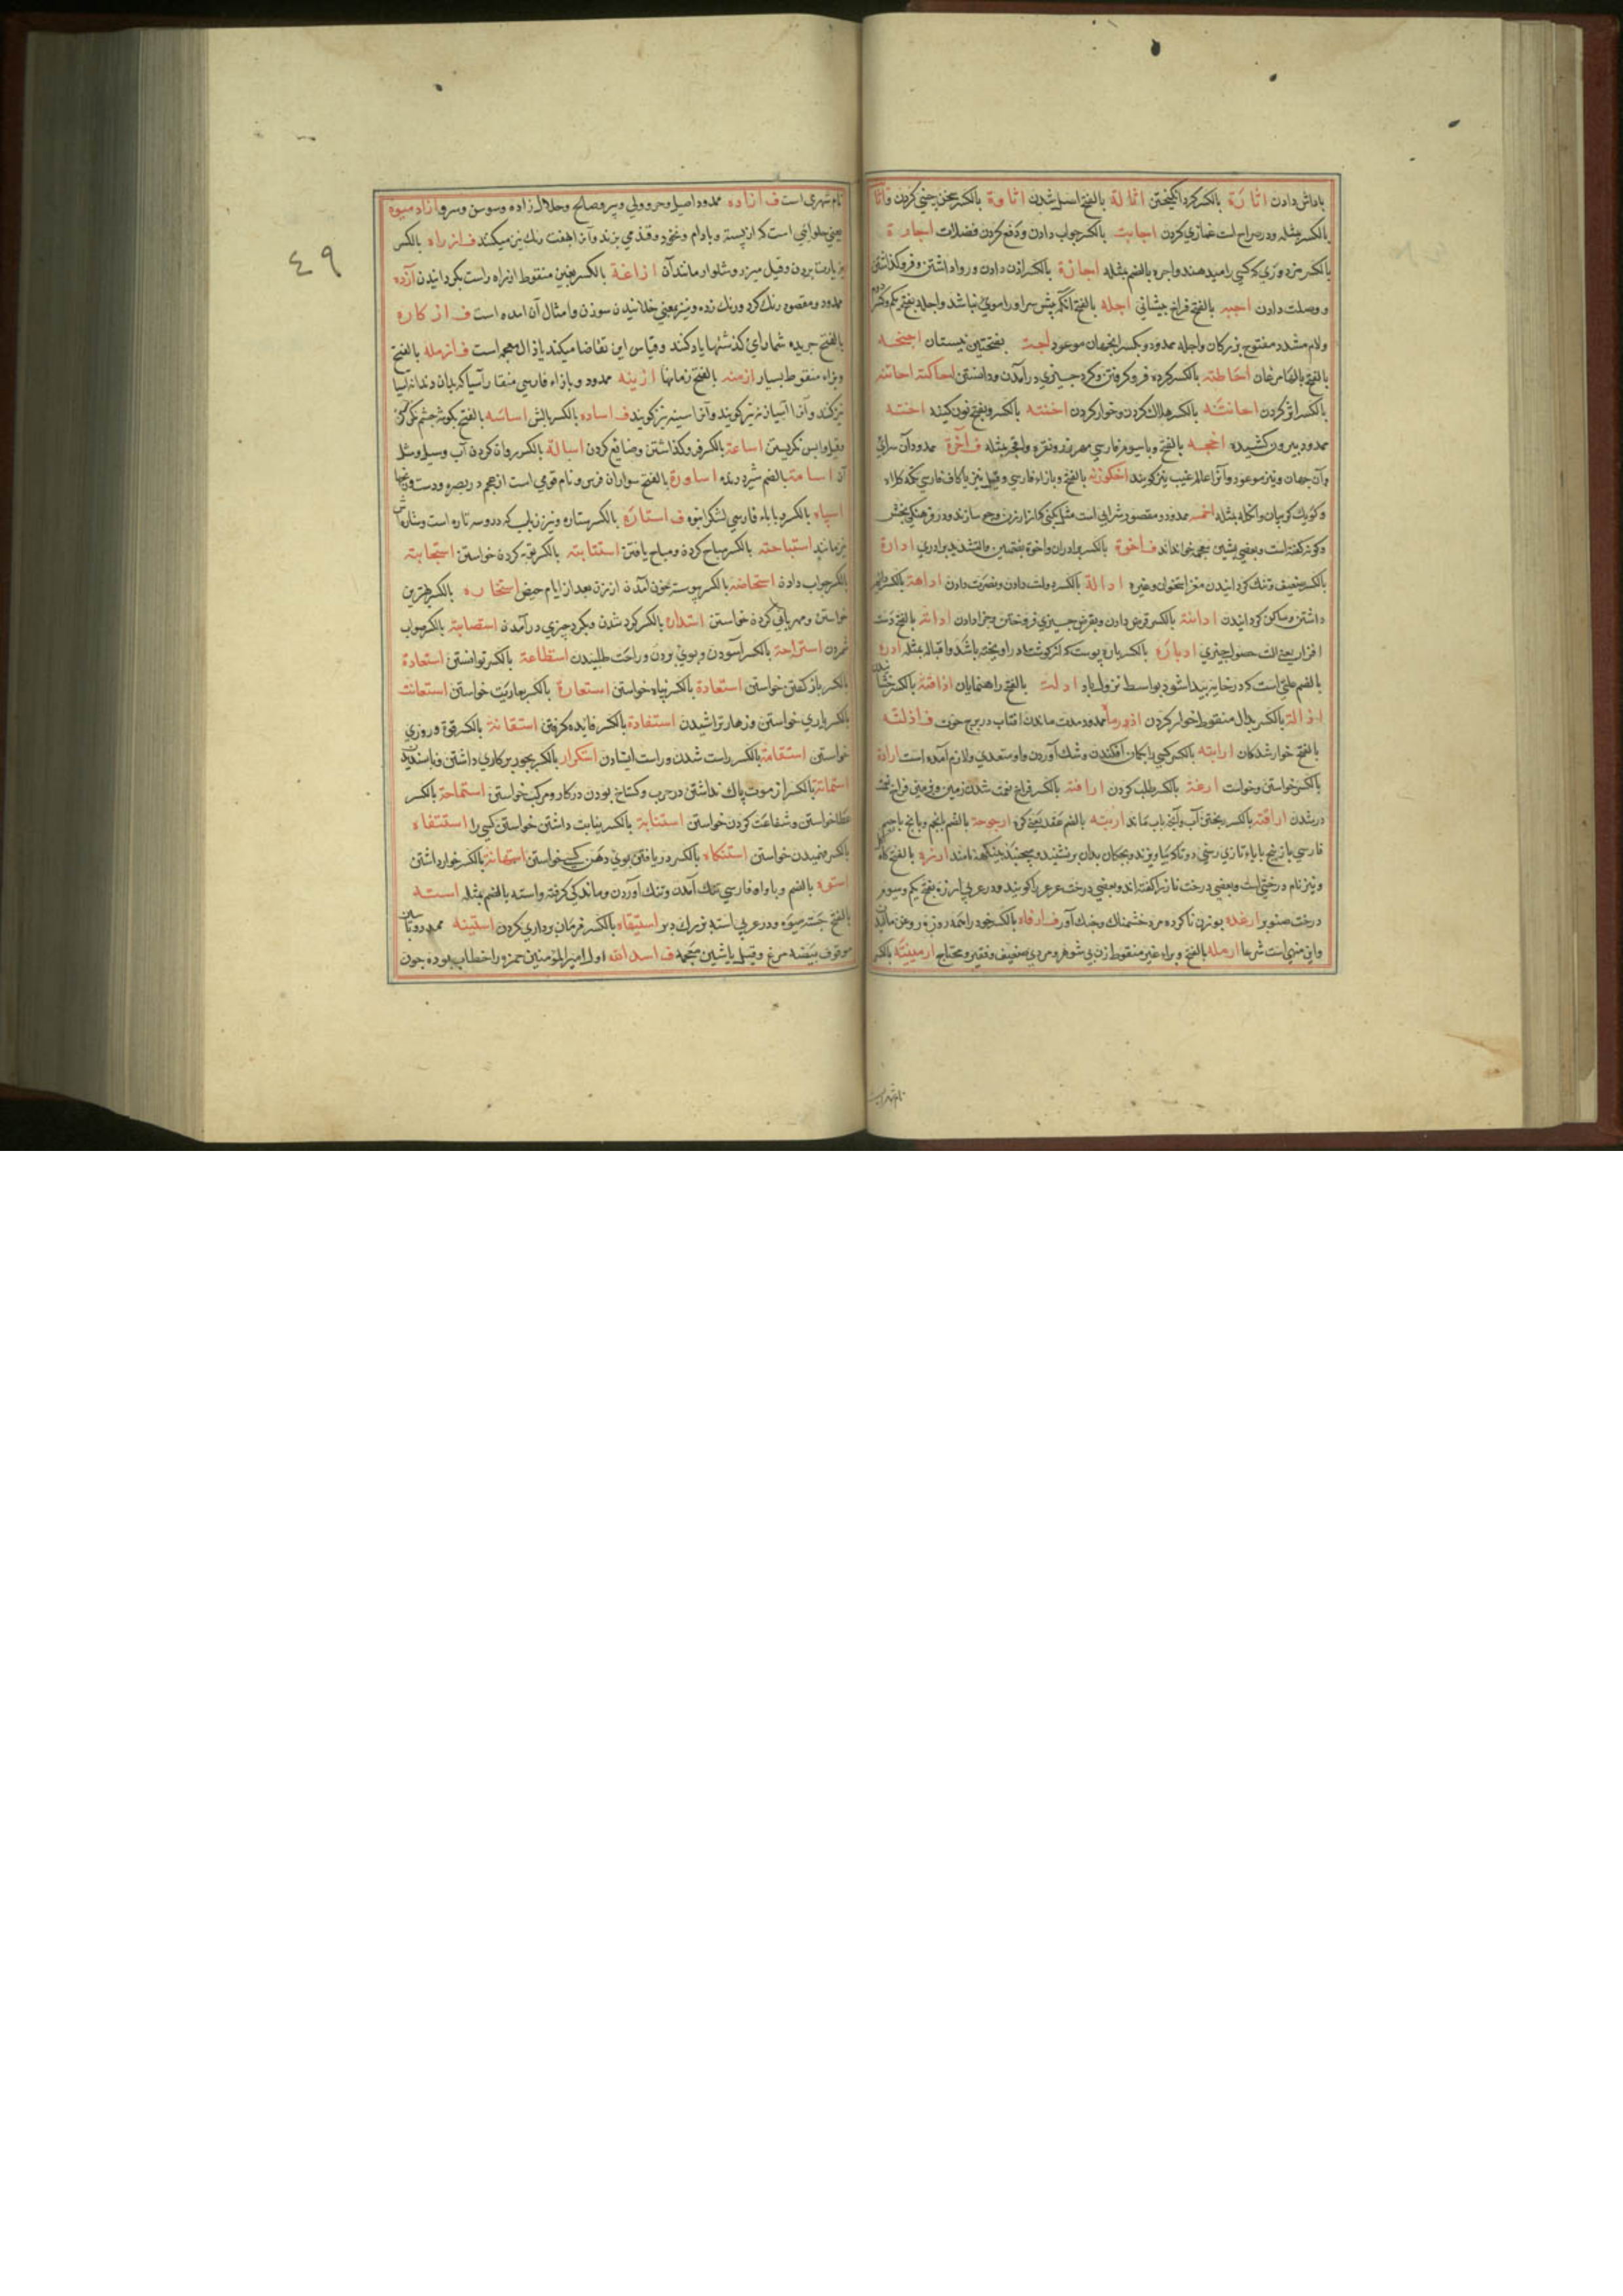 پاداش دادن اثارة بالکسر کرد انگیختن اثالة بالفتح اصیل شدن اثاوة بالکسر سخن چینی کردن واثا
بالکسر مثله ودر صراح است غمازی کردن اجابت بالکسر جواب دادن ودفع کردن فضلات اجارة
بالکسر مزدوری که کسی را میدهند واجره بالضم مثله اجازة بالکسر اذن دادن وروا داشتن وفروکذاشتن
ووصلت دادن اجبه بالفتح فراخ پیشانی اجله بالفتح آنکه پیش سر اورا موی نباشد واجله بفتح یکم وکسر دوم
ولام مشدد مفتوح بزرکان واجله ممدود وبکسر آنجهان موعود اجت بفتحتین نیستان اجنحه
بالفتح بالهاء مرغان احاطته بالکسر کرد فروکرفتن وکرد چیزی درآمدن ودانستن احاکته احاتته
بالکسر کردن احانته بالکسر هلاک کردن وخوار کردن اخنته بالکسر وبفتح نون کینه اخنته
ممدود بیرون کشیده اخجه بالفتح وبا سیوم فارسی مهر زر ونقره مثله ف آخرة ممدود آن سرای
وآن جهان ونیز موعود وآنرا عالم غیب نیز کویند اخکوزنه بالفتح وبا زاء فارسی وقیل نیز با کاف فارسی تکمه کلاه
وکویک کریبان واخکله مثله اخمسه ممدود ومقصور شرابی است مثل بکنی که از ارزن وجو سازند ودر فرهنکی بخش
وکوزه کفته است وبعضی بشین معجمه خوانداند ف اخوة بالکسر برادران واخوة بضمتین والتشدید برادری ادارة
بالکسر ضعیف وتنک کردانیدن مغز استخوان وغیره ادالة بالکسر دولت دادن ونصرت دادن ادامة بالکسر دائم
داشتن وساکن کردانیدن ادانة بالکسر قرض دادن وبقرض چیزی فروختن وجزا دادن اداة بالفتح دست
افزار یعنی آلت حصول چیزی ادبارة بالکسر پاره پوست که از کوش شتر آویخته باشد واقباله مثله ادرة
بالضم علتی است که در خایه پیدا شود بواسطه نزول باد ادلت بالفتح راهنمایان اذاقته بالکسر چشانیدن
اذالة بالکسر بذال منقوط خوار کردن اذرماه ممدود مدت ماندن آفتاب در برج حوت ف اذلته
بالفتح خوار شدکان ارابته بالکسر کسی را بکمان افکندن وشک آوردن واو متعدی ولازم آمده است ارادة
بالکسر خواستن وخواست ارغة بالکسر طلب کردن ارافته بالکسر فراخ نعمت شدن زمین وزمین فراخ نعمت
در شدن اراقته بالکسر ریختن آب وآنچه باب ماند اربته بالضم عقد یعنی کره ارجوحة بالضم بانجم وبا حاء
فارسی یا ریسمی که بدرخت بیاویزند وبچکان بدان برنشینند ومیجنبند ارزه بالفتح
ونیز نام درختی است وبعضی درخت ناز را کفته اند وبعضی درخت عرعر را کویند ودر عربی ارزة بفتح یکم وسیوم
درخت صنوبر ارغده بوزن ناکرده مرد خشمناک وجنک آور ف ارفاه بالکسر خود را همه روزه روغن مالیدن
واین منهی است شرعا ارمله بالفتح وبراء غیر منقوط زن بی شوهر ومردی ضعیف وفقیر ومحتاج ارمینیته بالکسر
نام شهر است
نام شهری است ف ازاده ممدود اصیل وحر وولی وپیر وصالح وحلال زاده وسوسن وسرو ازاد میوه
یعنی حلوائی است که از پسته وبادام ونخود وقند می پزند وآنرا هفت رنک نیز میکنند ف ازراه بالکسر
بزیارت بردن وقیل میزر وشلوار مانند آن ازاغة بالکسر بغین منقوط از راه راست بکردانیدن آزده
ممدود ومقصور رنک کرد ورنک زده ونیز بمعنی خلانیدن سوزن وامثال آن آمده است ف ازکاره
بالفتح جریده شمارای کذشتها یاد کند وقیاس این تقاضا میکند با ذال معجم است ف ازمله بالفتح
وبزاء منقوط بسیار ازمنه بالفتح زمانها ازینه ممدود وبا زاء فارسی منقار آسیا که بدان دندانه آسیا
تیز کنند وآنرا آسیازنه نیز کویند وآنرا آسینه نیز کویند ف اساده بالکسر بالش اساسه بالفتح بکوشه چشم نکریستن
وقیل واپس نکریستن اساعة بالکسر فروکذاشتن وضایع کردن اسالة بالکسر روان کردن آب وسیل ومثل
آن اسامة بالضم شیر درنده اساورة بالفتح سواران فرس ونام قومی است از عجم در بصره ودست ورنجها
اسپاه بالکسر وبا باء فارسی لشکر انبوه ف استاره بالکسر ستاره ونیز زبانی که در دو سه تاره است وستاره اش
نیز مانند استباحته بالکسر مباح کردن ومباح یافتن استتابته بالکسر توبه کردن خواستن استجابته
بالکسر جواب دادن استحاضه بالکسر پیوسته خون آمدن از زن بعد از ایام حیض استخاره بالکسر بهترین
خواستن ومهربانی کردن خواستن استداره بالکسر کرد شدن وبکرد چیزی درآمدن استصابته بالکسر صواب
شمردن استراحة بالکسر آسودن وبوی بودن وراحت طلبیدن استطاعة بالکسر توانستن استعادة
بالکسر باز کفتن خواستن استعاذة بالکسر پناه خواستن استعارة بالکسر بعاریت خواستن استعانت
بالکسر یاری خواستن وزهار تراشیدن استفادة بالکسر فایده کرفتن استقانة بالکسر قوت وروزی
خواستن استقامة بالکسر راست شدن وراست ایستادن استکرار بالکسر بجور بر کاری داشتن وناپسندیدن
استماتة بالکسر از موت باک نداشتن در حرب وکستاخ بودن در کار ومرکب خواستن استماحة بالکسر
عطا خواستن وشفاعت کردن خواستن استنابة بالکسر نیابت داشتن خواستن کسی را استنفاه
بالکسر فهمیدن خواستن استنکاه بالکسر دریافتن بوی دهن کسی خواستن استهانة بالکسر خوار داشتن
استوه بالضم وبا واو فارسی تنک آمدن وتنک آوردن ومانده کی کرفته واسته بالضم مثله استه
بالفتح خسته میوه ودر عربی استه بزرک دبر استیقاه بالکسر فرمان برداری کردن استینه ممدود وبا سین
موقوف بیضه مرغ وقیل با شین معجمه ف اسدالله اول امیر المؤمنین حمزه را خطاب بوده چون
٤٩